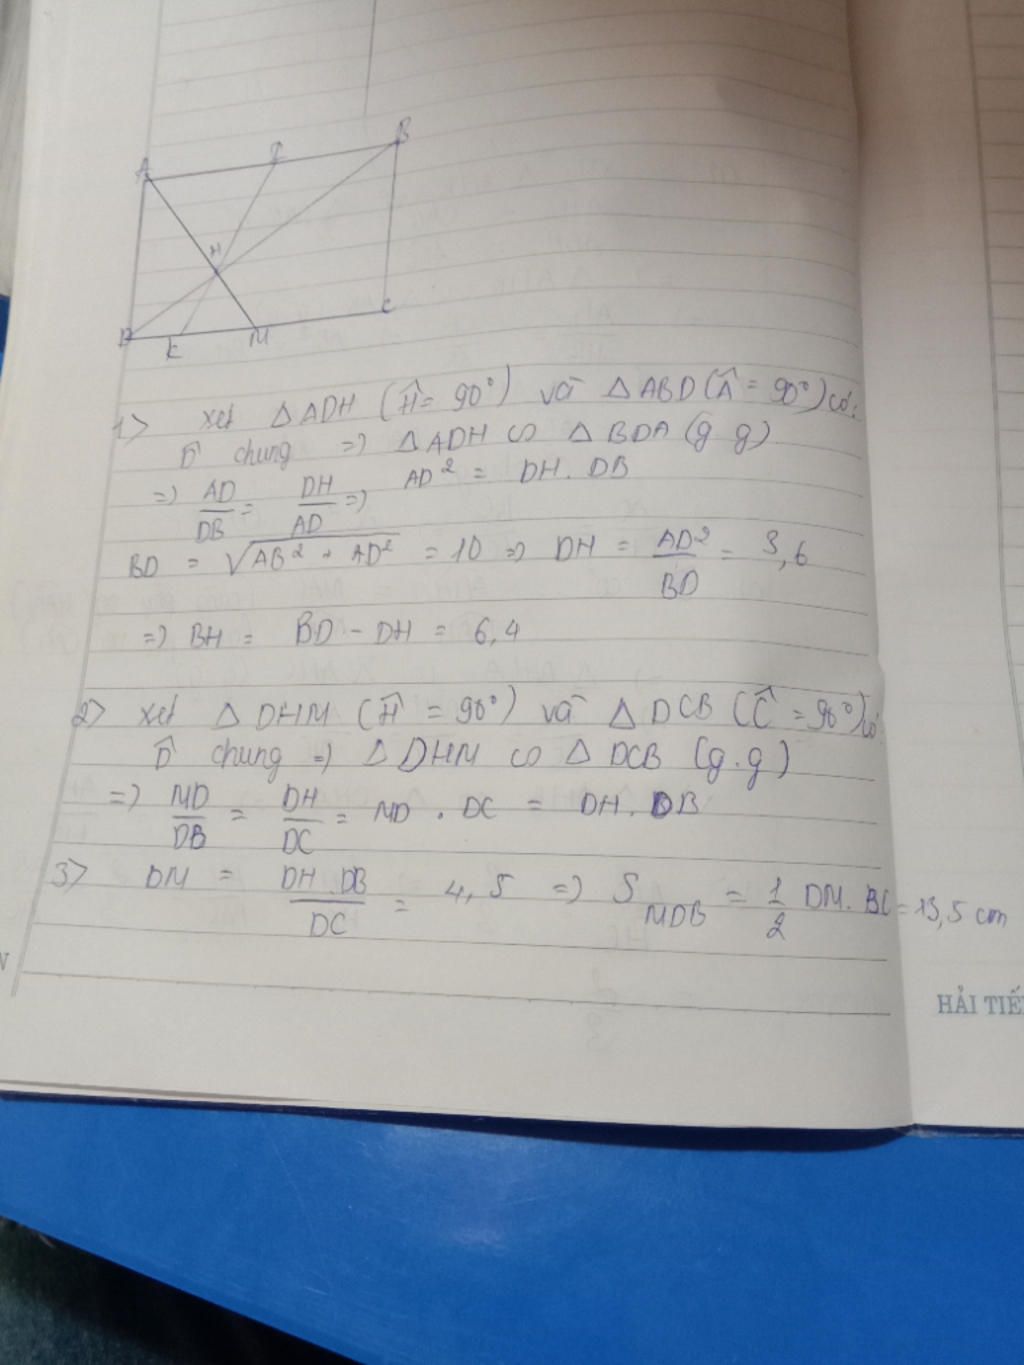 A
B
H
D
K
M
C
1> Xét △ADH (Ĥ = 90°) và △ABD (Â = 90°) có:
D̂ chung => △ADH ∽ △BDA (g g)
=> AD/DB = DH/AD => AD² = DH. DB
BD = √(AB² + AD²) = 10 => DH = AD²/BD = 3,6
=> BH = BD - DH = 6,4
2> Xét △DHM (Ĥ = 90°) và △DCB (Ĉ = 90°) có
D̂ chung => △DHM ∽ △DCB (g.g)
=> MD/DB = DH/DC = MD . DC = DH. DB
3> DM = DH.DB/DC = 4,5 => S MDB = 1/2 DM. BC = 13,5 cm
HẢI TIẾ